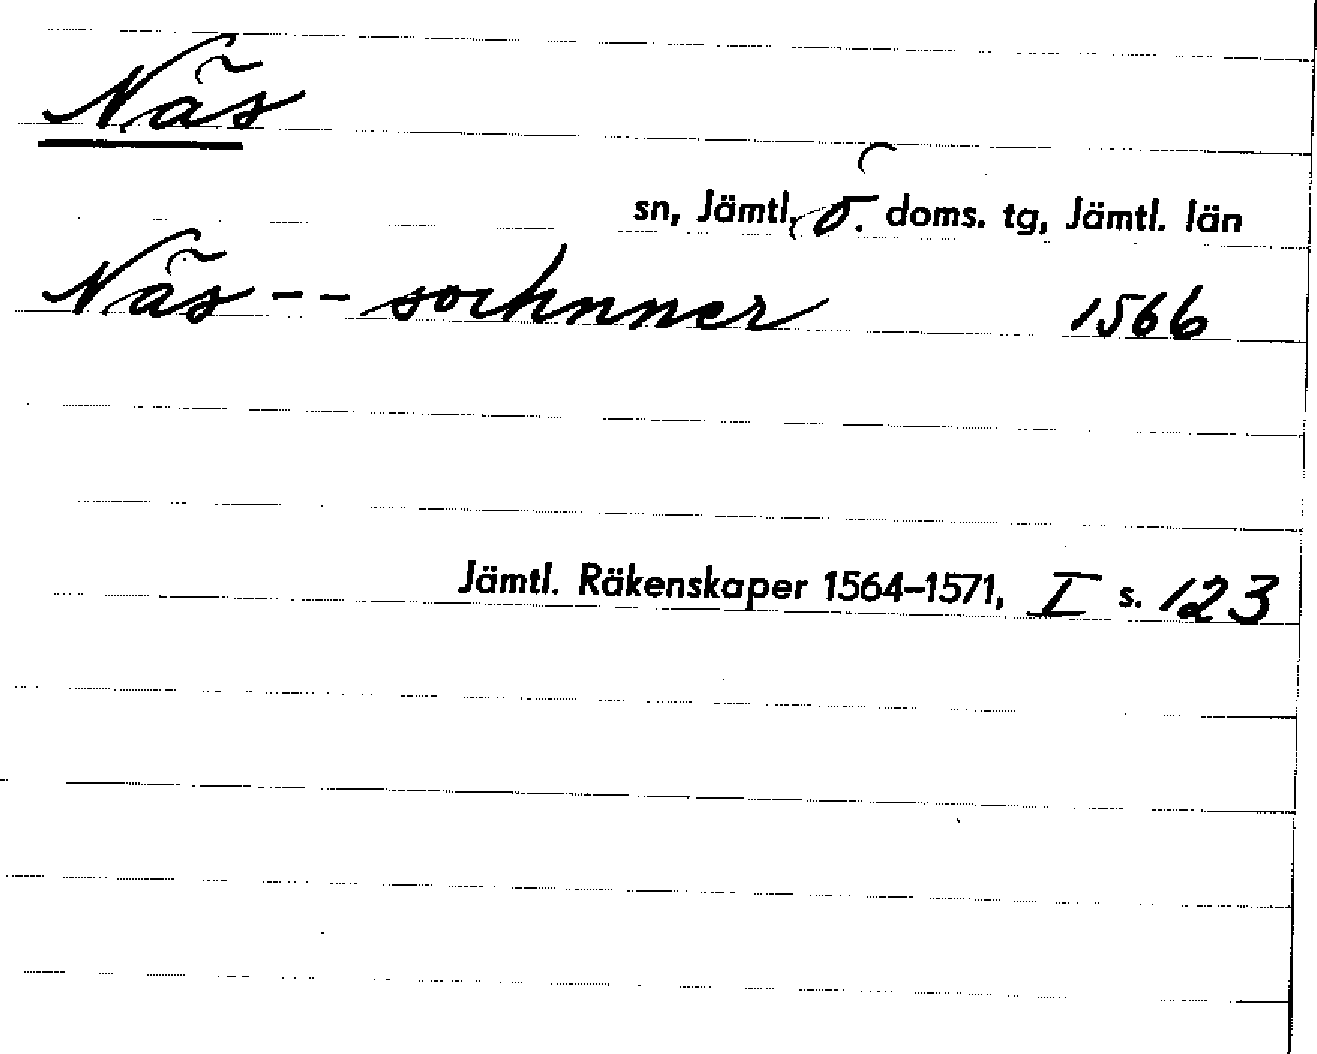 Näs
sn, Jämtl, ö. doms. tg, Jämtl. län
Näs -- sochnner 1566
Jämtl. Räkenskaper 1564–1571, I s. 123